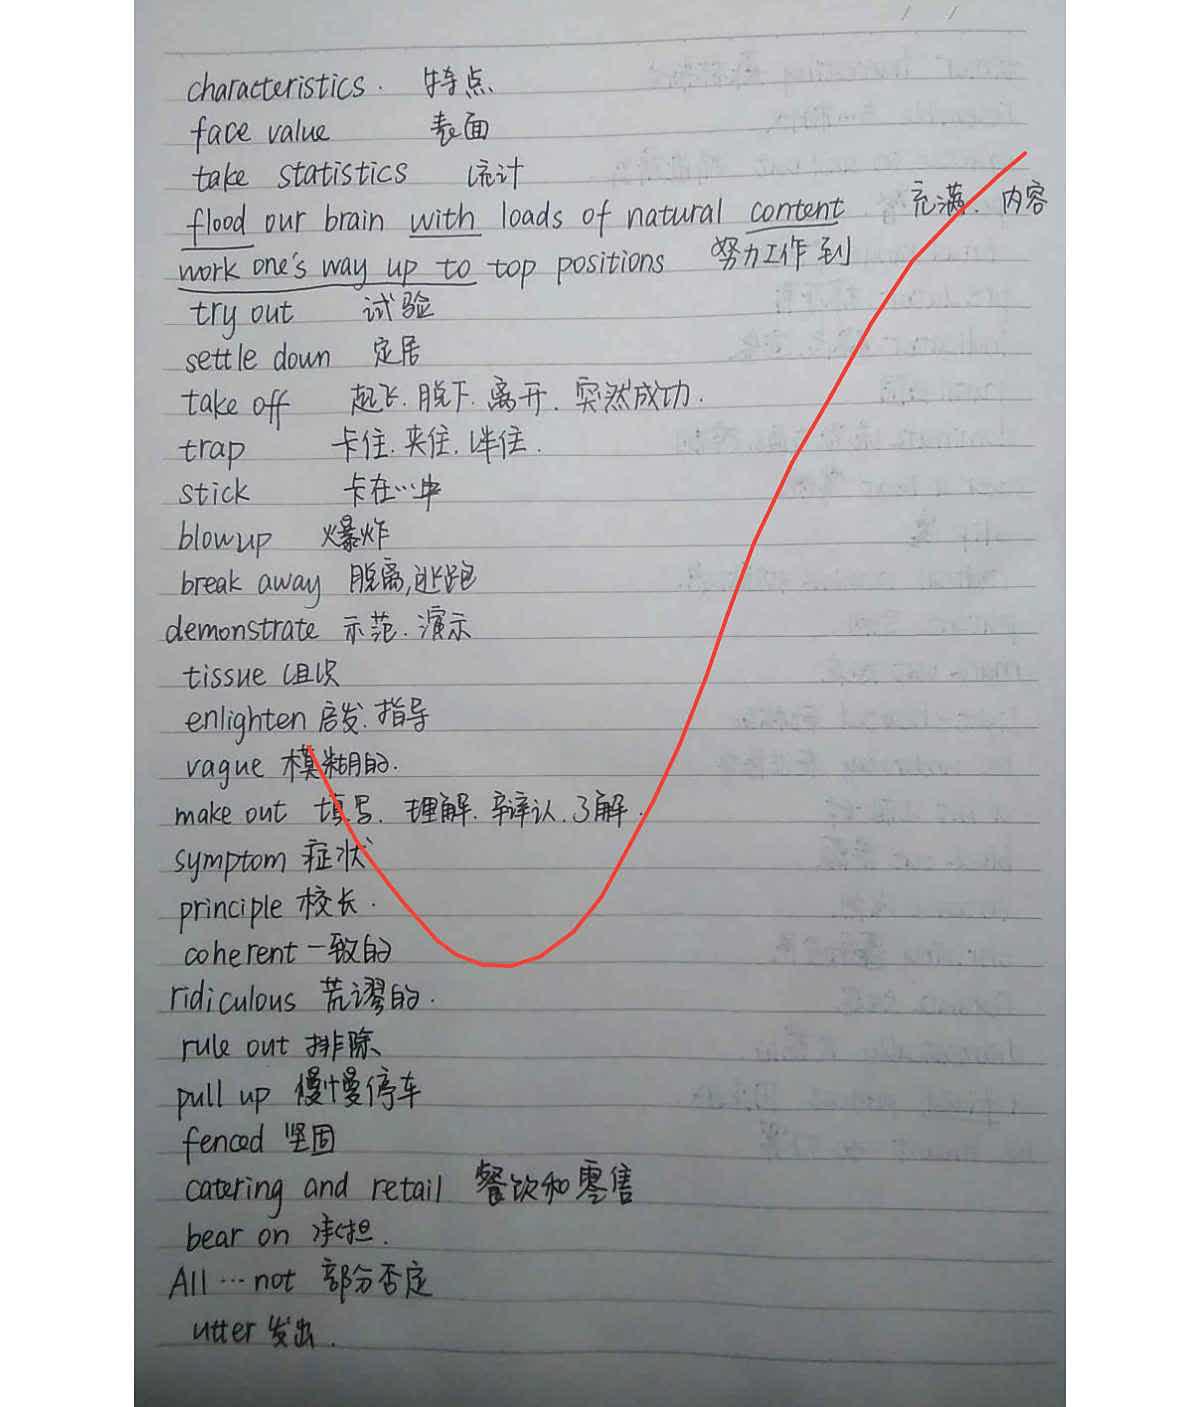 characteristics. 特点
face value 表面
take statistics 统计
flood our brain with loads of natural content 充满. 内容
work one's way up to top positions 努力工作到
try out 试验
settle down 定居
take off 起飞. 脱下. 离开. 突然成功.
trap 卡住. 夹住. 绊住.
stick 卡在…中
blow up 爆炸
break away 脱离,逃跑
demonstrate 示范. 演示
tissue 组织
enlighten 启发. 指导
vague 模糊的.
make out 填写. 理解. 辩认. 了解.
symptom 症状
principle 校长.
coherent 一致的
ridiculous 荒谬的.
rule out 排除
pull up 慢慢停车
fenced 坚固
catering and retail 餐饮和零售
bear on 承担.
All … not 部分否定
utter 发出.